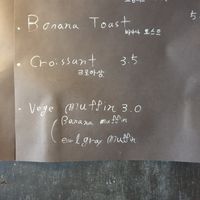 5
• Banana Toast
바나나 토스트
• Croissant 3.5
크로와상
• Vege muffin 3.0
( Banana muffin
earl gray muffin